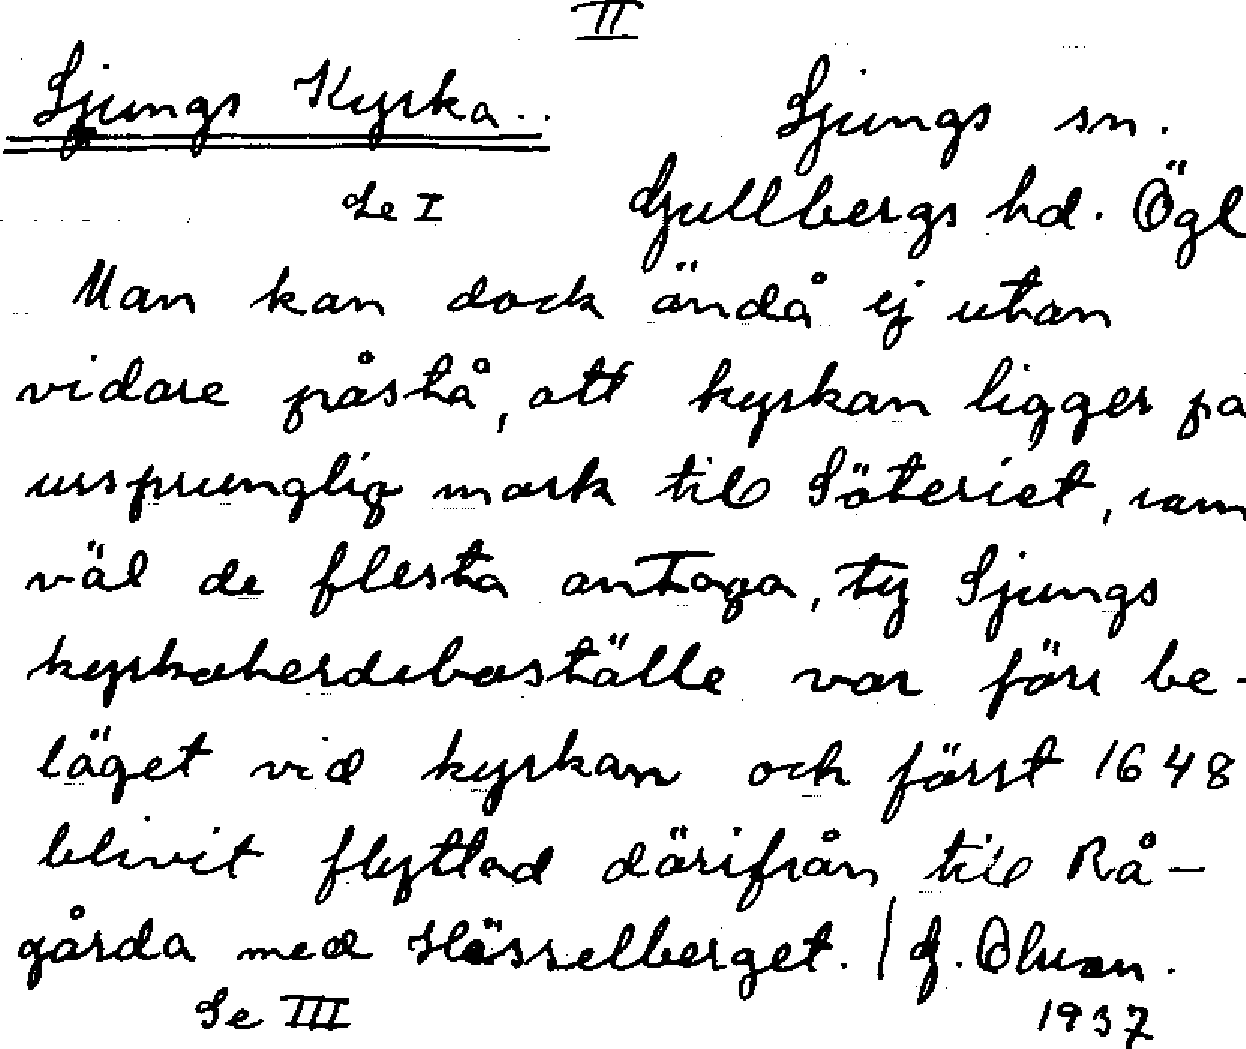 II
Ljungs Kyrka.. Ljungs sn.
Se I Gullbergs hd. Ögl
Man kan dock ändå ej utan
vidare påstå, att kyrkan ligger på
ursprunglig mark till Säteriet, som
väl de flesta antaga, ty Ljungs
kyrkoherdeboställe var förr be-
läget vid kyrkan och först 1648
blivit flyttad därifrån till Rå-
gårda med Hässelberget. / G.
Se III 1937